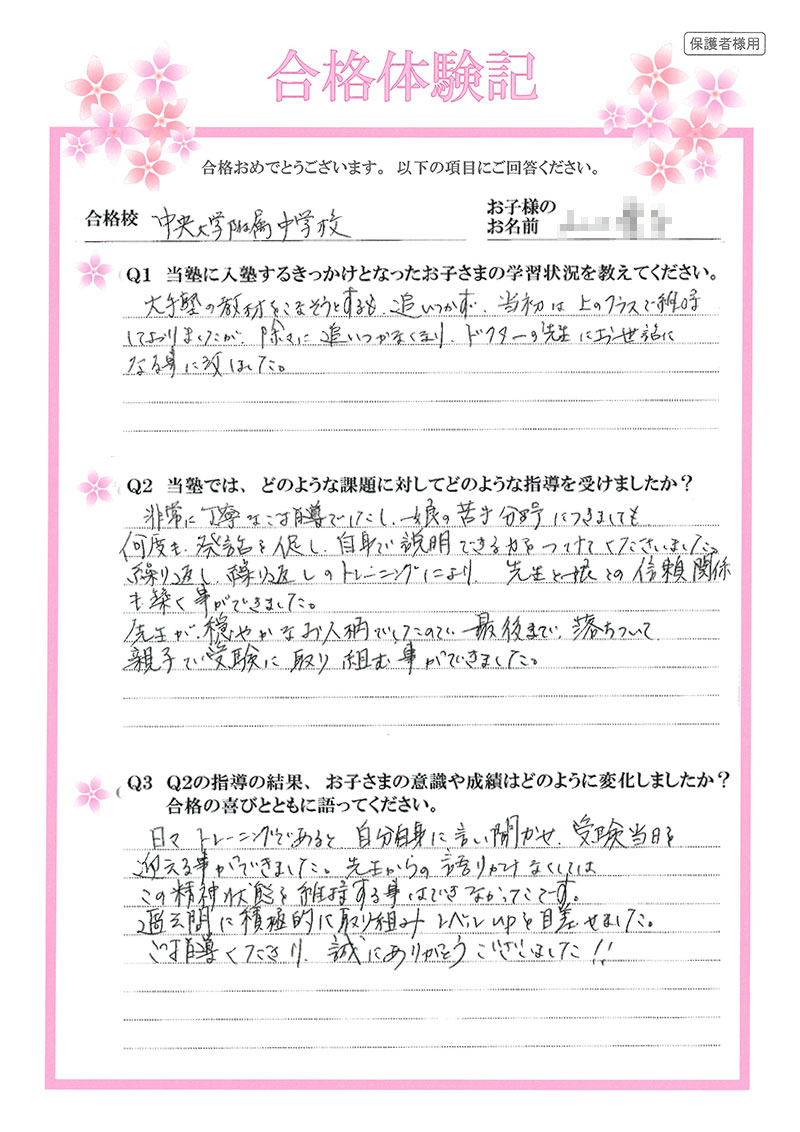 保護者様用
合格体験記
合格おめでとうございます。以下の項目にご回答ください。
合格校 中央大学附属中学校
お子様の
お名前
Q1 当塾に入塾するきっかけとなったお子さまの学習状況を教えてください。
大手塾の教材をこなそうとするも、追いつかず、当初は上のクラスで維持
しておりましたが、除々に追いつかなくなり、ドクターの先生にお世話に
なる事に致しました。
Q2 当塾では、どのような課題に対してどのような指導を受けましたか？
非常に丁寧なご指導でしたし、娘の苦手分野につきましても
何度も、発話を促し、自身で説明できる力をつけてくださいました。
繰り返し、繰り返しのトレーニングにより、先生と娘との信頼関係
も築く事ができました。
先生が穏やかなお人柄でしたので、最後まで、落ちついて
親子で受験に取り組む事ができました。
Q3 Q2の指導の結果、お子さまの意識や成績はどのように変化しましたか？
合格の喜びとともに語ってください。
日々トレーニングであると自分自身に言い聞かせ、受験当日を
迎える事ができました。先生からの語りかけなくしては
この精神状態を維持する事はできなかったです。
過去問に積極的に取り組み レベルupを目差せました。
ご指導くださり、誠にありがとうございました!!